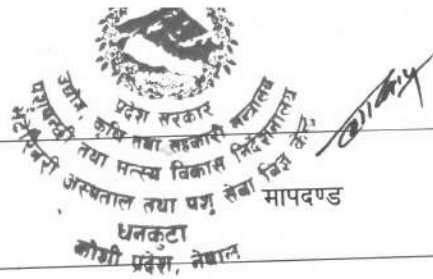 प्रदेश सरकार
उद्योग, कृषि तथा सहकारी मन्त्रालय
पशुपन्छी तथा मत्स्य विकास निर्देशनालय
भेटेरिनरी अस्पताल तथा पशु सेवा विज्ञ केन्द्र
मापदण्ड
धनकुटा
कोशी प्रदेश, नेपाल